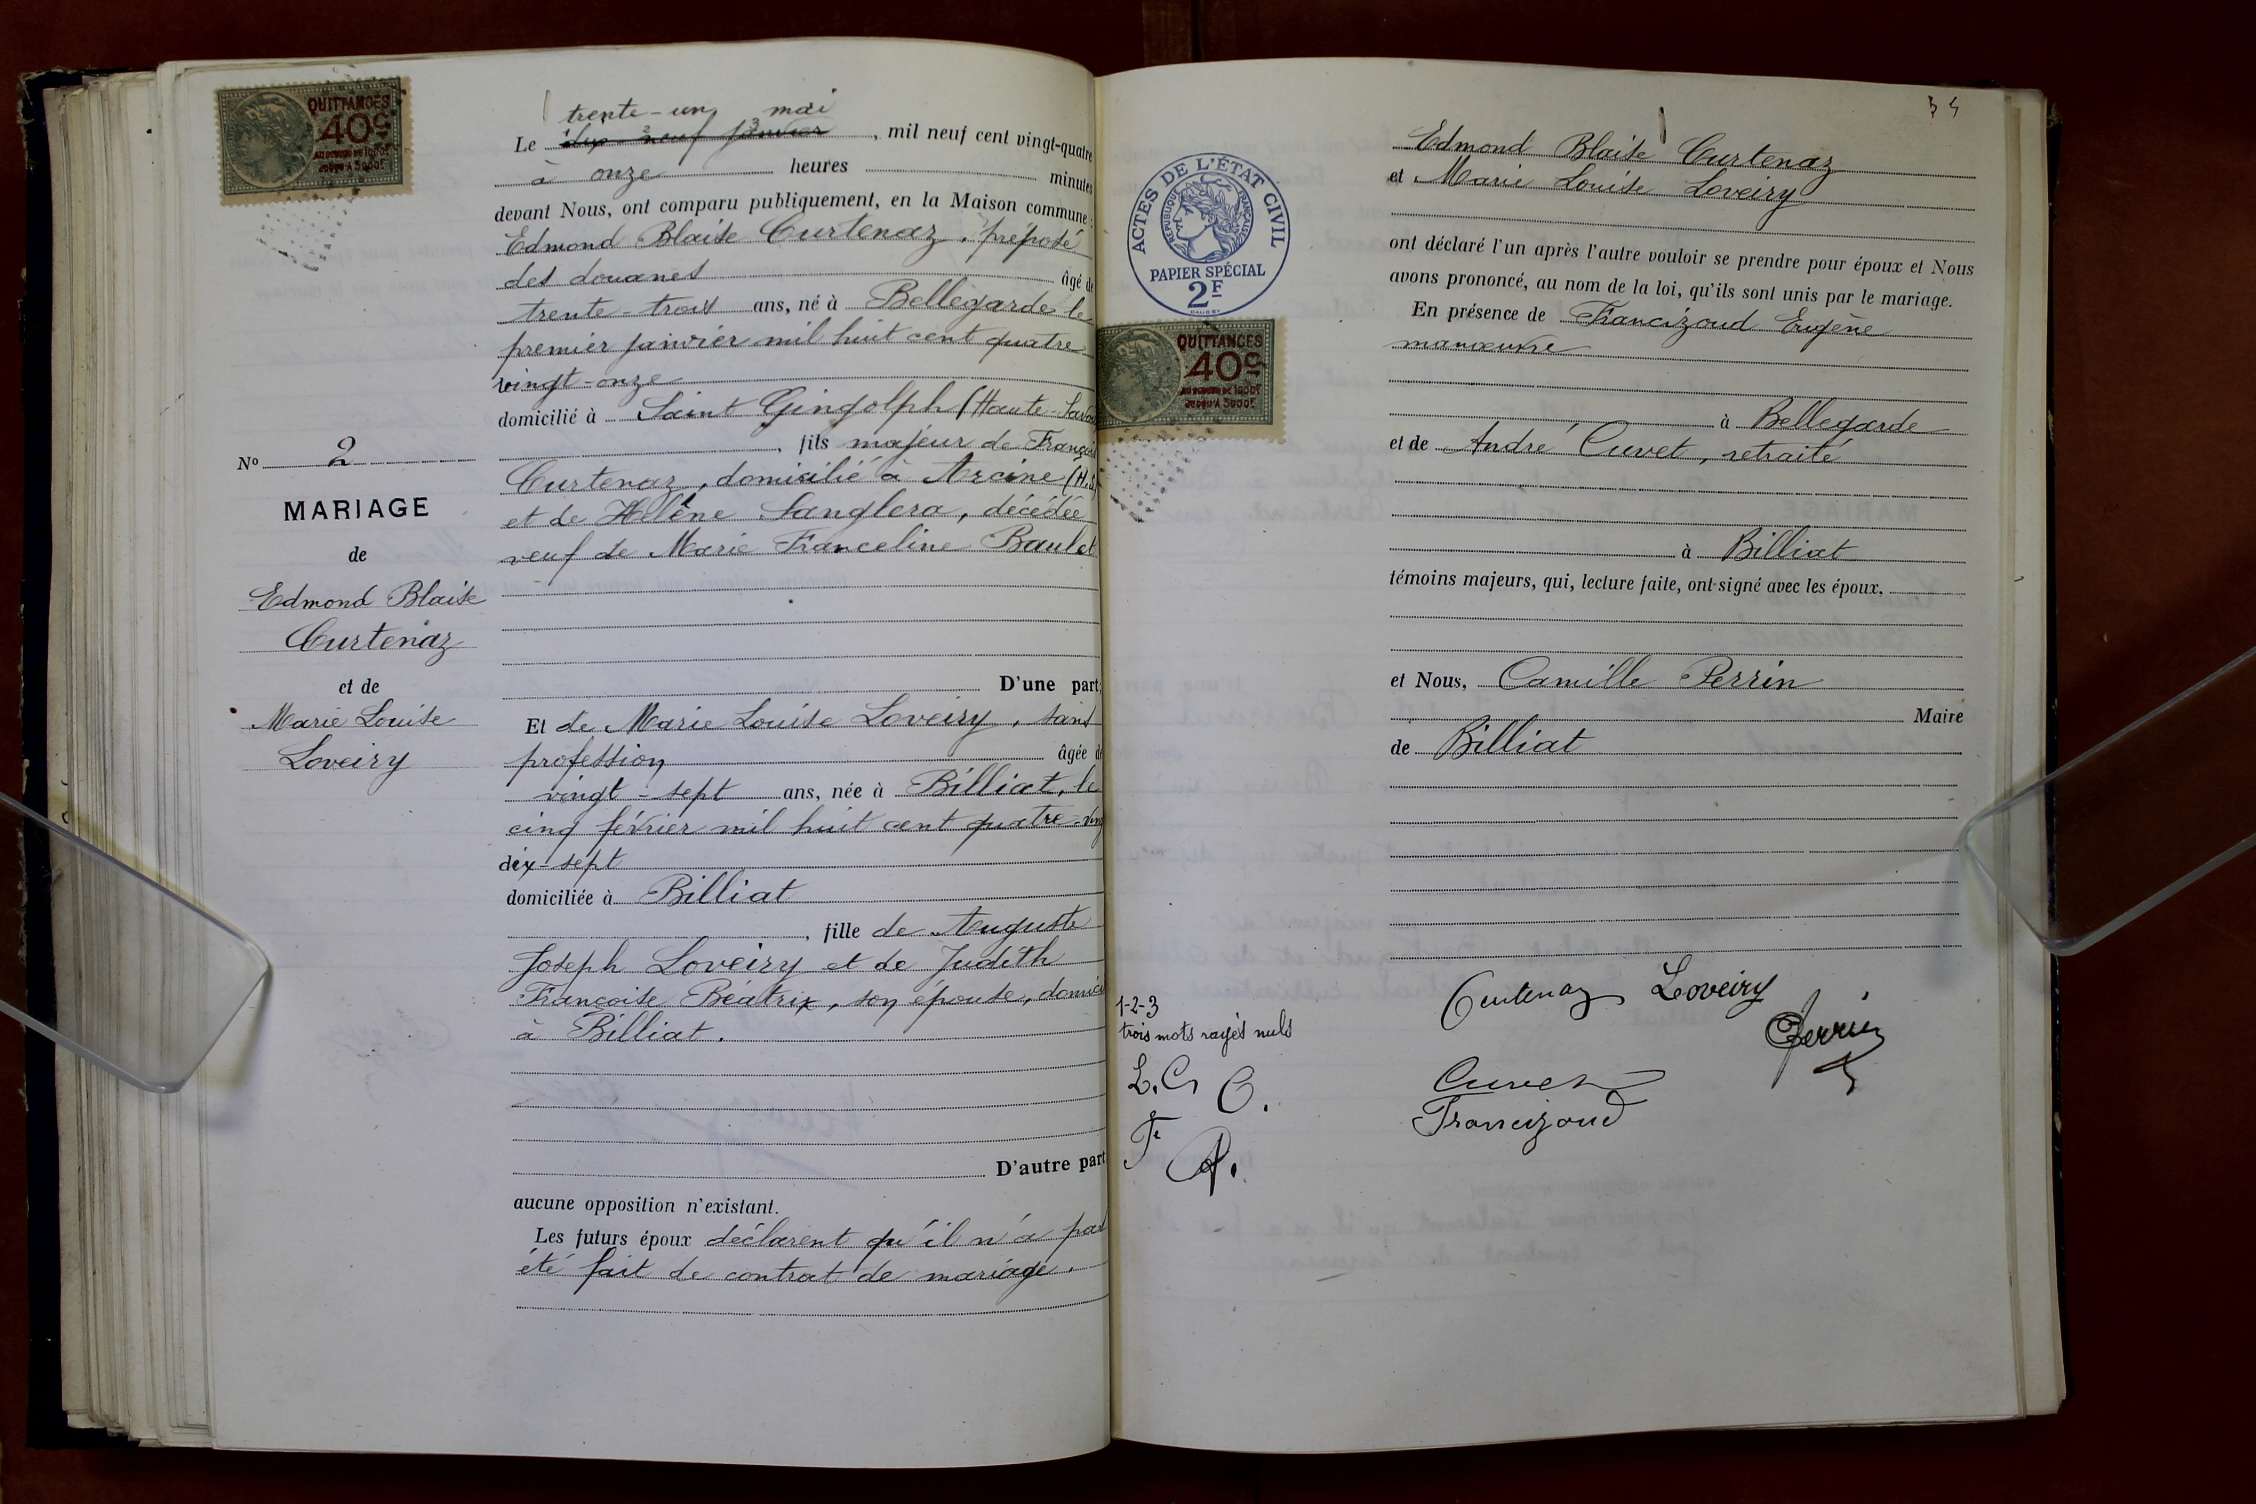 QUITTANCES
40c
trente-un mai
Le dix neuf janvier, mil neuf cent vingt-quatre
à onze heures minutes
devant Nous, ont comparu publiquement, en la Maison commune :
Edmond Blaise Curtenaz, préposé
des douanes âgé de
trente-trois ans, né à Bellegarde le
premier janvier mil huit cent quatre
vingt-onze
domicilié à Saint Gingolph (Haute-Savoie
, fils majeur de François
Curtenaz, domicilié à Arcine (H.S)
et de Hélène Sanglera, décédée
veuf de Marie Franceline Baulet
D'une part;
Et de Marie Louise Loveiry, sans
profession âgée de
vingt-sept ans, née à Billiat, le
cinq février mil huit cent quatre-vingt
dix-sept
domiciliée à Billiat
, fille de Auguste
Joseph Loveiry et de Judith
Françoise Béatrix, son épouse, domici
à Billiat.
D'autre part
aucune opposition n'existant.
Les futurs époux déclarent qu'il n'a pas
été fait de contrat de mariage.
No 2
MARIAGE
de
Edmond Blaise
Curtenaz
et de
Marie Louise
Loveiry
ACTES DE L'ÉTAT CIVIL
RÉPUBLIQUE FRANÇAISE
PAPIER SPÉCIAL
2F
QUITTANCES
40c
Edmond Blaise Curtenaz
et Marie Louise Loveiry
ont déclaré l'un après l'autre vouloir se prendre pour époux et Nous
avons prononcé, au nom de la loi, qu'ils sont unis par le mariage.
En présence de Francizoud Eugène
manœuvre
à Bellegarde
et de André Cuvet, retraité
à Billiat
témoins majeurs, qui, lecture faite, ont signé avec les époux,
et Nous, Camille Perrin
Maire
de Billiat
1-2-3
trois mots rayés nuls
L. C. C.
F.
P.
Curtenaz Loveiry
Perrin
Cuvet
Francizoud